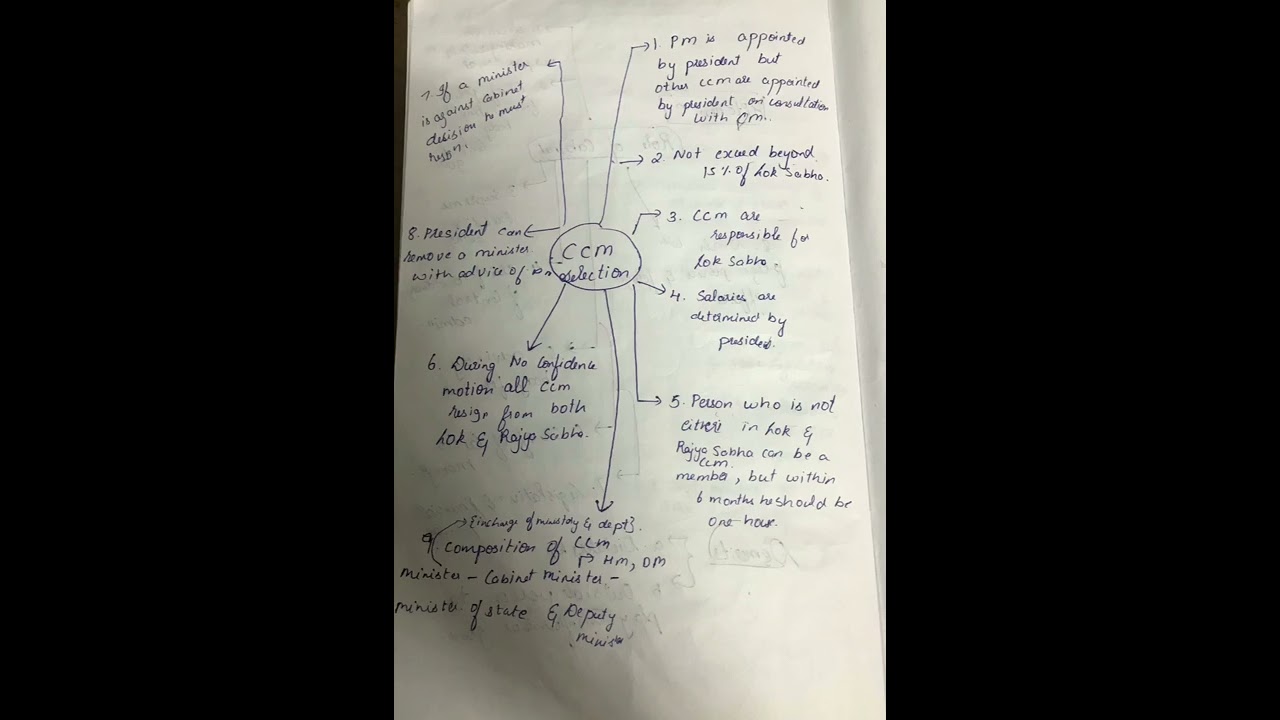 1. PM is appointed
by president but
other CCM are appointed
by president on consultation
with PM.
2. Not exceed beyond
15% of Lok Sabha.
3. CCM are
responsible for
Lok Sabha
4. Salaries are
determined by
president.
5. Person who is not
either in Lok &
Rajya Sabha can be a
CCM
member, but within
6 months he should be
one hour.
6. During No Confidence
motion all CCM
resign from both
Lok & Rajya Sabha.
7. If a minister
is against cabinet
decision he must
8. President can
remove a minister
with advice of
CCM
selection
{incharge of ministory & dept}.
9. Composition of CCM
HM, DM
minister - Cabinet minister -
minister of state & Deputy
minister